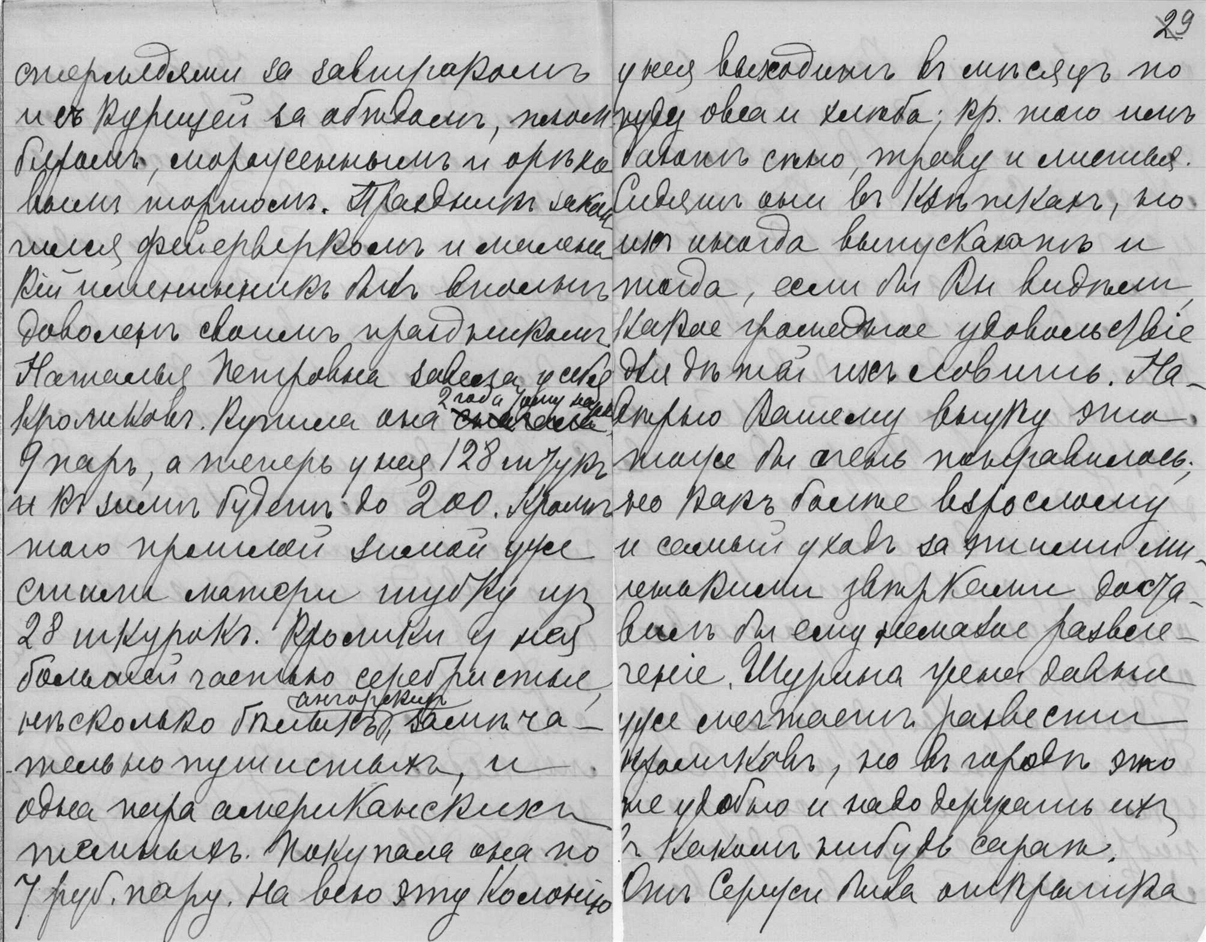 стерлядями за завтракомъ
и съ курицей за обѣдомъ, плом
биромъ, мороженнымъ и орѣхо
вымъ тортомъ. Праздникъ закон
чился фейерверкомъ и малень
кій именинникъ былъ вполнѣ
доволенъ своимъ праздникомъ
Наталья Петровна завела у себя
кроликовъ. Купила она 2 года тому наз.
9 паръ, а теперь у нея 128 штукъ
и къ зимѣ будетъ до 200. Кромѣ
того прошлой зимой уже
сшили матери шубку изъ
28 шкурокъ. Кролики у нея
большей частью серебристые,
нѣсколько бѣлыхъ ангорскихъ, замѣча-
тельно пушистыхъ, и
одна пара американскихъ
темныхъ. Покупала она по
7 руб. пару. На всю эту колонію
29
у нея выходитъ въ мѣсяцъ по
пуду овса и хлѣба; кр. того имъ
даютъ сѣно, траву и листья.
Сидятъ они въ клѣткахъ, но
ихъ иногда выпускаютъ и
тогда, если бы Вы видѣли,
какое громадное удовольствіе
для дѣтей ихъ ловить. На-
вѣрно Вашему внуку это
тоже бы очень понравилось,
но какъ болѣе взрослому
и самый уходъ за этими ми-
ленькими звѣрками доста-
вилъ бы ему немалое развле-
ченіе. Шурина жена давно
уже мечтаетъ развести
кроликовъ, но въ городѣ это
не удобно и надо держать ихъ
въ какомъ нибудь сараѣ.
Отъ Сережи была открытка